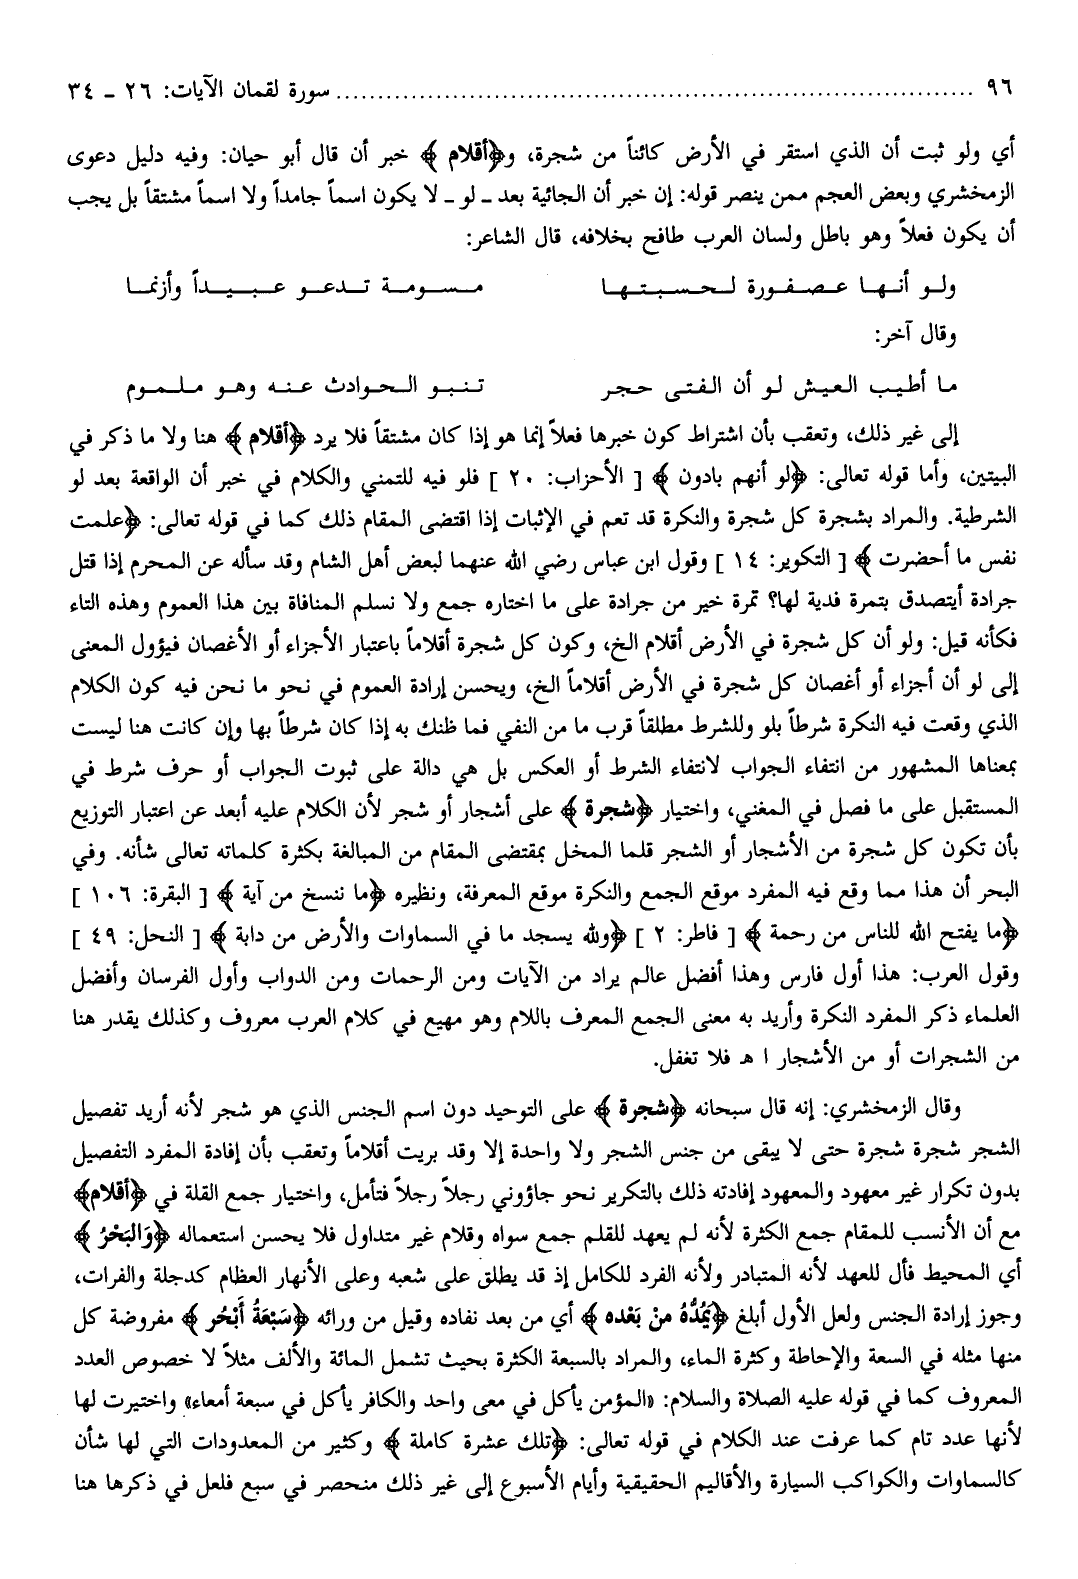 ٩٦ ........................................................................ سورة لقمان الآيات: ٢٦ ـ ٣٤
أي ولو ثبت أن الذي استقر في الأرض كائناً من شجرة، و﴿أقلام﴾ خبر أن قال أبو حيان: وفيه دليل دعوى
الزمخشري وبعض العجم ممن ينصر قوله: إن خبر أن الجائية بعد ـ لو ـ لا يكون اسماً جامداً ولا اسماً مشتقاً بل يجب
أن يكون فعلاً وهو باطل ولسان العرب طافح بخلافه، قال الشاعر:
ولو أنها عصفورة لحسبتها مسومة تدعو عبيداً وأزنما
وقال آخر:
ما أطيب العيش لو أن الفتى حجر تنبو الحوادث عنه وهو ملموم
إلى غير ذلك، وتعقب بأن اشتراط كون خبرها فعلاً إنما هو إذا كان مشتقاً فلا يرد ﴿أقلام﴾ هنا ولا ما ذكر في
البيتين، وأما قوله تعالى: ﴿لو أنهم بادون﴾ [ الأحزاب: ٢٠ ] فلو فيه للتمني والكلام في خبر أن الواقعة بعد لو
الشرطية. والمراد بشجرة كل شجرة والنكرة قد تعم في الإثبات إذا اقتضى المقام ذلك كما في قوله تعالى: ﴿علمت
نفس ما أحضرت﴾ [ التكوير: ١٤ ] وقول ابن عباس رضي الله عنهما لبعض أهل الشام وقد سأله عن المحرم إذا قتل
جرادة أيتصدق بتمرة فدية لها؟ تمرة خير من جرادة على ما اختاره جمع ولا نسلم المنافاة بين هذا العموم وهذه التاء
فكأنه قيل: ولو أن كل شجرة في الأرض أقلام الخ، وكون كل شجرة أقلاماً باعتبار الأجزاء أو الأغصان فيؤول المعنى
إلى لو أن أجزاء أو أغصان كل شجرة في الأرض أقلاماً الخ، ويحسن إرادة العموم في نحو ما نحن فيه كون الكلام
الذي وقعت فيه النكرة شرطاً بلو وللشرط مطلقاً قرب ما من النفي فما ظنك به إذا كان شرطاً بها وإن كانت هنا ليست
بمعناها المشهور من انتفاء الجواب لانتفاء الشرط أو العكس بل هي دالة على ثبوت الجواب أو حرف شرط في
المستقبل على ما فصل في المغني، واختيار ﴿شجرة﴾ على أشجار أو شجر لأن الكلام عليه أبعد عن اعتبار التوزيع
بأن تكون كل شجرة من الأشجار أو الشجر قلما المخل بمقتضى المقام من المبالغة بكثرة كلماته تعالى شأنه. وفي
البحر أن هذا مما وقع فيه المفرد موقع الجمع والنكرة موقع المعرفة، ونظيره ﴿ما ننسخ من آية﴾ [ البقرة: ١٠٦ ]
﴿ما يفتح الله للناس من رحمة﴾ [ فاطر: ٢ ] ﴿ولله يسجد ما في السماوات والأرض من دابة﴾ [ النحل: ٤٩ ]
وقول العرب: هذا أول فارس وهذا أفضل عالم يراد من الآيات ومن الرحمات ومن الدواب وأول الفرسان وأفضل
العلماء ذكر المفرد النكرة وأريد به معنى الجمع المعرف باللام وهو مهيع في كلام العرب معروف وكذلك يقدر هنا
من الشجرات أو من الأشجار ا هـ فلا تغفل.
وقال الزمخشري: إنه قال سبحانه ﴿شجرة﴾ على التوحيد دون اسم الجنس الذي هو شجر لأنه أريد تفصيل
الشجر شجرة شجرة حتى لا يبقى من جنس الشجر ولا واحدة إلا وقد بريت أقلاماً وتعقب بأن إفادة المفرد التفصيل
بدون تكرار غير معهود والمعهود إفادته ذلك بالتكرير نحو جاؤوني رجلاً رجلاً فتأمل، واختيار جمع القلة في ﴿أقلام﴾
مع أن الأنسب للمقام جمع الكثرة لأنه لم يعهد للقلم جمع سواه وقلام غير متداول فلا يحسن استعماله ﴿وَالبَحْرُ﴾
أي المحيط فأل للعهد لأنه المتبادر ولأنه الفرد للكامل إذ قد يطلق على شعبه وعلى الأنهار العظام كدجلة والفرات،
وجوز إرادة الجنس ولعل الأول أبلغ ﴿يَمُدُّهُ مِنْ بَعْده﴾ أي من بعد نفاده وقيل من ورائه ﴿سَبْعَةُ أَبْحُر﴾ مفروضة كل
منها مثله في السعة والإحاطة وكثرة الماء، والمراد بالسبعة الكثرة بحيث تشمل المائة والألف مثلاً لا خصوص العدد
المعروف كما في قوله عليه الصلاة والسلام: «المؤمن يأكل في معى واحد والكافر يأكل في سبعة أمعاء» واختيرت لها
لأنها عدد تام كما عرفت عند الكلام في قوله تعالى: ﴿تلك عشرة كاملة﴾ وكثير من المعدودات التي لها شأن
كالسماوات والكواكب السيارة والأقاليم الحقيقية وأيام الأسبوع إلى غير ذلك منحصر في سبع فلعل في ذكرها هنا